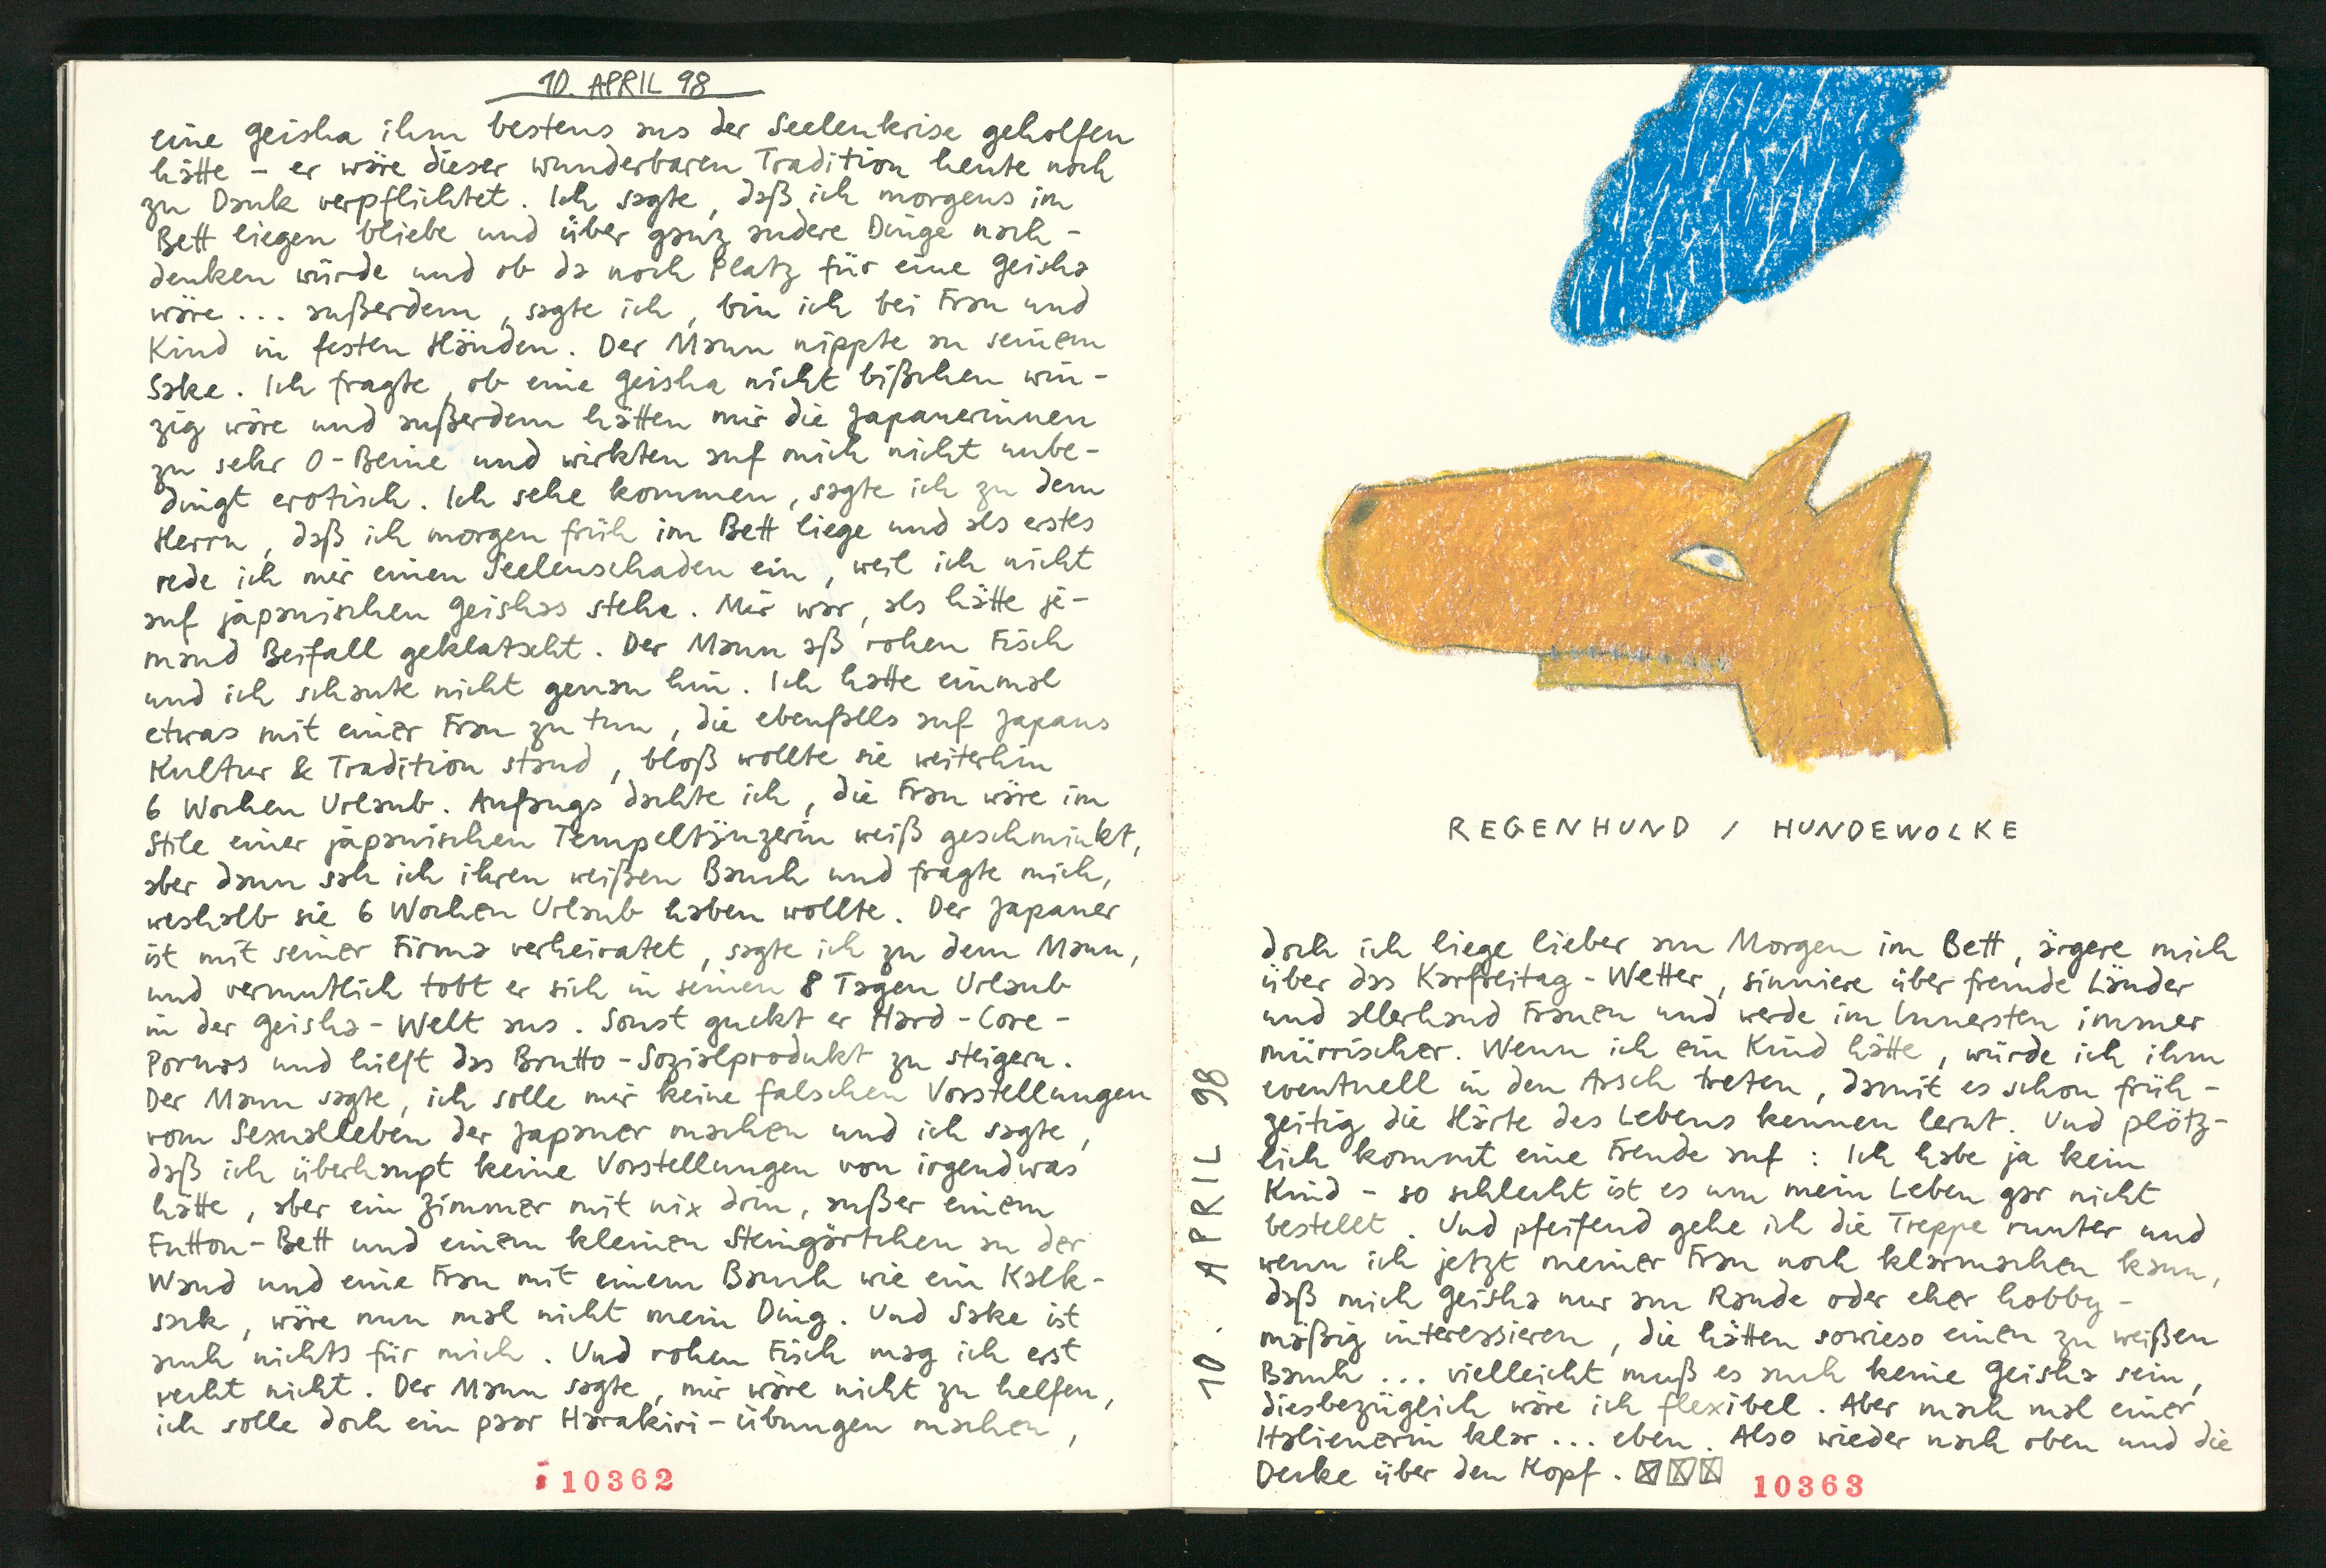 10. APRIL 98
eine Geisha ihm bestens aus der Seelenkrise geholfen
hätte – er wäre dieser wunderbaren Tradition heute noch
zu Dank verpflichtet. Ich sagte, daß ich morgens im
Bett liegen bliebe und über ganz andere Dinge nach-
denken würde und ob da noch Platz für eine Geisha
wäre ... außerdem, sagte ich, bin ich bei Frau und
Kind in festen Händen. Der Mann nippte an seinem
Sake. Ich fragte, ob eine Geisha nicht bißchen win-
zig wäre und außerdem hätten mir die Japanerinnen
zu sehr O-Beine und wirkten auf mich nicht unbe-
dingt erotisch. Ich sehe kommen, sagte ich zu dem
Herrn, daß ich morgen früh im Bett liege und als erstes
rede ich mir einen Seelenschaden ein, weil ich nicht
auf japanischen Geishas stehe. Mir war, als hätte je-
mand Beifall geklatscht. Der Mann aß rohen Fisch
und ich schaute nicht genau hin. Ich hatte einmal
etwas mit einer Frau zu tun, die ebenfalls auf Japans
Kultur & Tradition stand, bloß wollte sie weiterhin
6 Wochen Urlaub. Anfangs dachte ich, die Frau wäre im
Stile einer japanischen Tempeltänzerin weiß geschminkt,
aber dann sah ich ihren weißen Bauch und fragte mich,
weshalb sie 6 Wochen Urlaub haben wollte. Der Japaner
ist mit seiner Firma verheiratet, sagte ich zu dem Mann,
und vermutlich tobt er sich in seinen 8 Tagen Urlaub
in der Geisha-Welt aus. Sonst guckt er Hard-Core-
Pornos und hilft das Brutto-Sozialprodukt zu steigern.
Der Mann sagte, ich solle mir keine falschen Vorstellungen
vom Sexualleben der Japaner machen und ich sagte,
daß ich überhaupt keine Vorstellungen von irgendwas
hätte, aber ein Zimmer mit nix drin, außer einem
Futton-Bett und einem kleinen Steingärtchen an der
Wand und eine Frau mit einem Bauch wie ein Kalk-
sack, wäre nun mal nicht mein Ding. Und Sake ist
auch nichts für mich. Und rohen Fisch mag ich erst
recht nicht. Der Mann sagte, mir wäre nicht zu helfen,
ich solle doch ein paar Harakiri-Übungen machen,
10362
REGENHUND / HUNDEWOLKE
10. APRIL 98
doch ich liege lieber am Morgen im Bett, ärgere mich
über das Karfreitag-Wetter, sinniere über fremde Länder
und allerhand Frauen und werde im Innersten immer
mürrischer. Wenn ich ein Kind hätte, würde ich ihm
eventuell in den Arsch treten, damit es schon früh-
zeitig die Härte des Lebens kennen lernt. Und plötz-
lich kommt eine Freude auf: Ich habe ja kein
Kind – so schlecht ist es um mein Leben gar nicht
bestellt. Und pfeifend gehe ich die Treppe runter und
wenn ich jetzt meiner Frau noch klarmachen kann,
daß mich Geisha nur am Rande oder eher hobby-
mäßig interessieren, die hätten sowieso einen zu weißen
Bauch ... vielleicht muß es auch keine Geisha sein,
diesbezüglich wäre ich flexibel. Aber mach mal einer
Italienerin klar ... eben. Also wieder nach oben und die
Decke über den Kopf.
10363